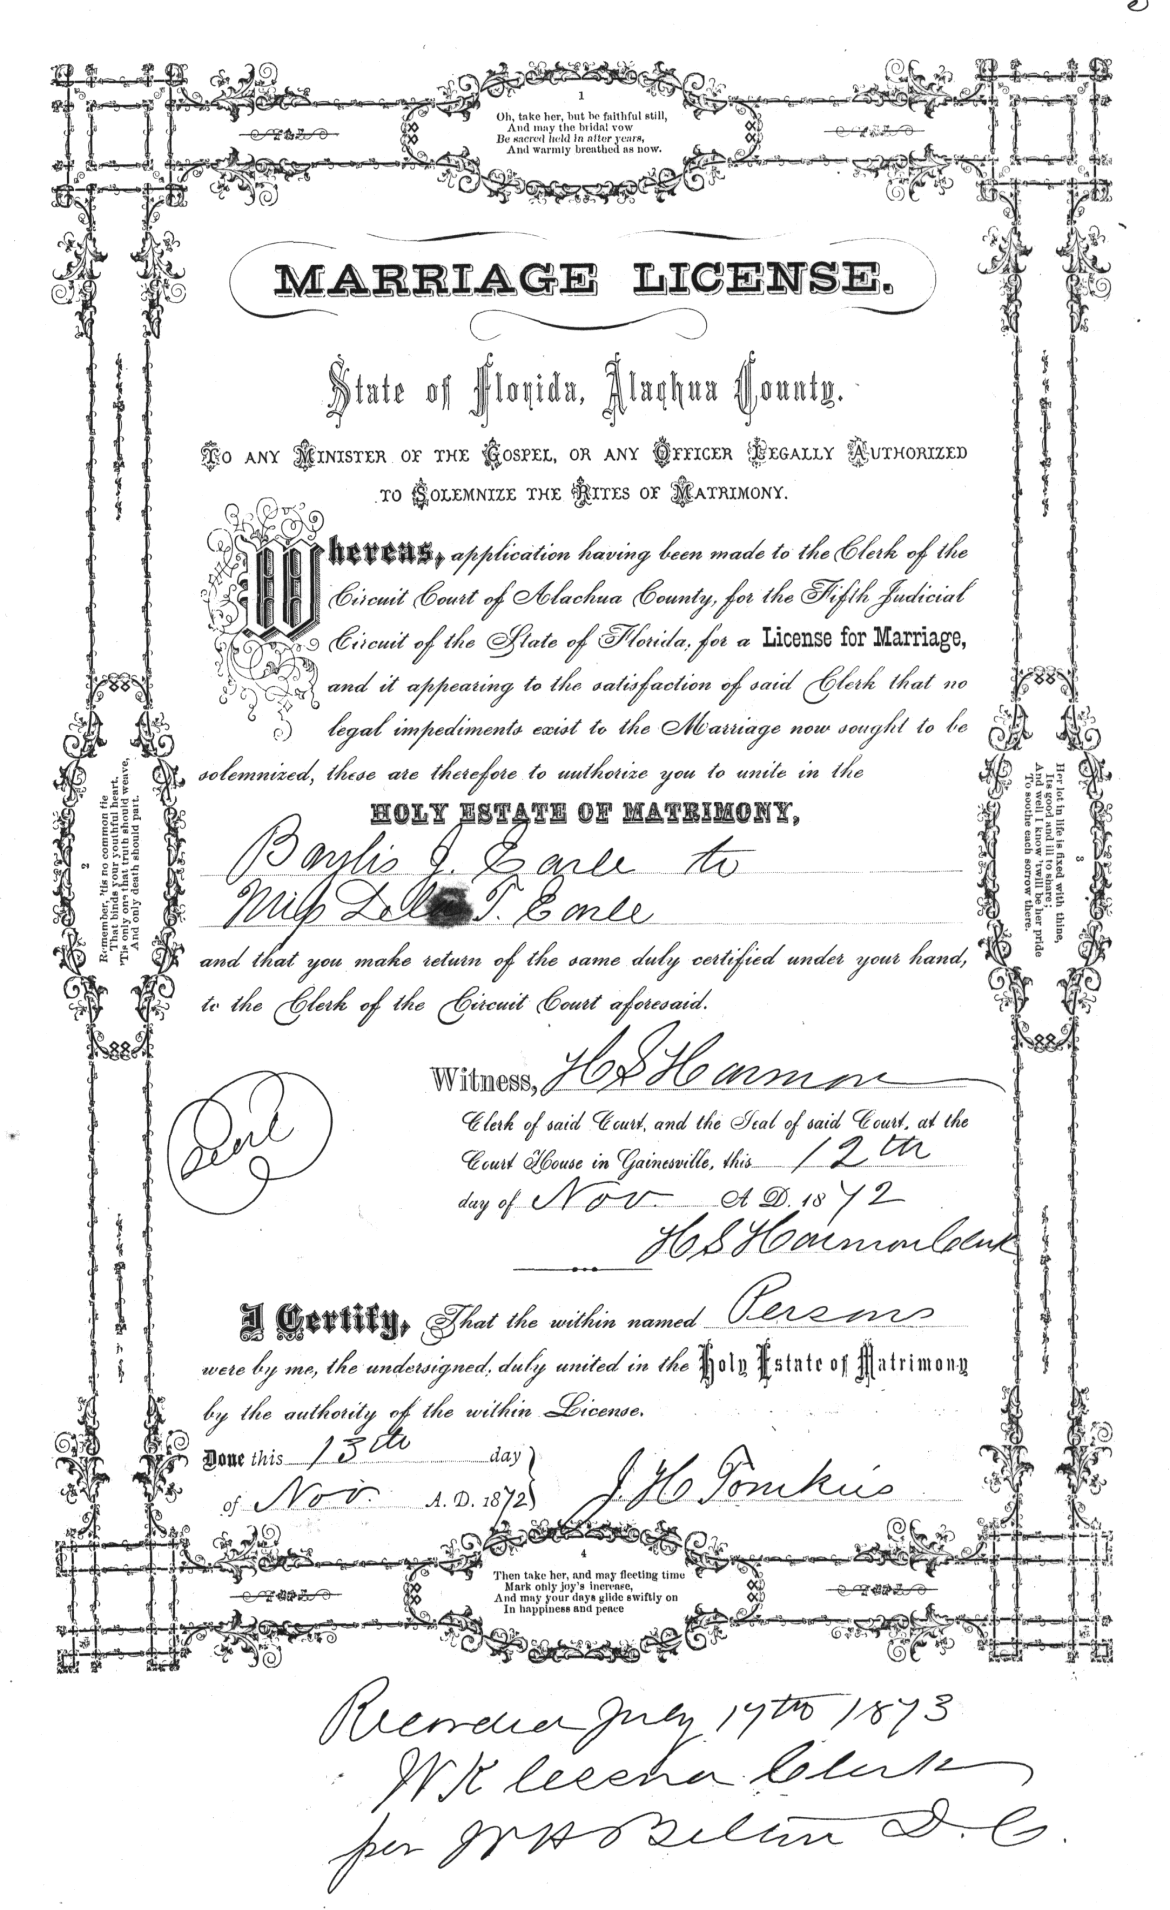 1
Oh, take her, but be faithful still,
And may the bridal vow
Be sacred held in after years,
And warmly breathed as now.
MARRIAGE LICENSE.
State of Florida, Alachua County.
TO ANY MINISTER OF THE GOSPEL, OR ANY OFFICER LEGALLY AUTHORIZED
TO SOLEMNIZE THE RITES OF MATRIMONY.
Whereas, application having been made to the Clerk of the
Circuit Court of Alachua County, for the Fifth Judicial
Circuit of the State of Florida, for a License for Marriage,
and it appearing to the satisfaction of said Clerk that no
legal impediments exist to the Marriage now sought to be
solemnized, these are therefore to authorize you to unite in the
HOLY ESTATE OF MATRIMONY,
Baylis J. Earle to
Miss T. Earle
and that you make return of the same duly certified under your hand,
to the Clerk of the Circuit Court aforesaid.
2
Remember, 'tis no common tie
That binds your youthful heart,
'Tis only one that truth should weave,
And only death should part.
3
Her lot in life is fixed with thine,
Its good and ill to share;
And well I know 'twill be her pride
To soothe each sorrow there.
Witness, H S Harmon
Clerk of said Court, and the Seal of said Court, at the
Court House in Gainesville, this 12th
day of Nov. A D. 1872
H S Harmon Clerk
Seal
I Certify, That the within named Persons
were by me, the undersigned, duly united in the Holy Estate of Matrimony
by the authority of the within License.
Done this 13th day
of Nov. A. D. 1872
J. H Tomkies
4
Then take her, and may fleeting time
Mark only joy's increase,
And may your days glide swiftly on
In happiness and peace
Recorded July 17th 1873
W K Cessna Clerk
per W H Belton D. C.